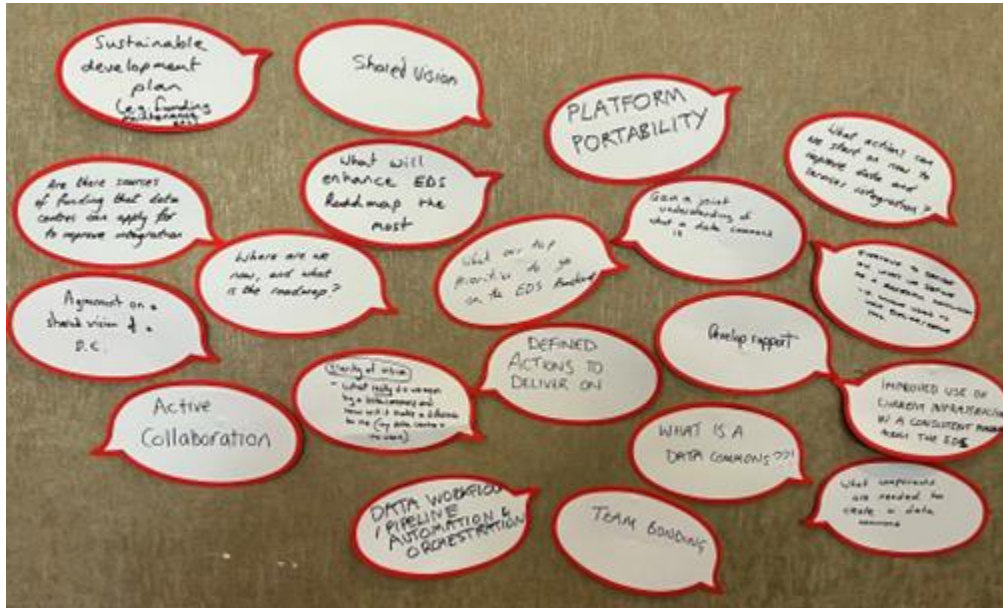 Sustainable
development
plan
(e.g. funding
Shared Vision
PLATFORM
PORTABILITY
What actions can
we start on now to
improve data and
services integration?
Are there sources
of funding that data
centres can apply for
to improve integration
What will
enhance EDS
Roadmap the
most
Gain a joint
understanding of
what a data commons
is
Where are we
now, and what
is the roadmap?
What our top
priorities to go
on the EDS Roadmap
Agreement on a
shared vision of a
D.C.
DEFINED
ACTIONS TO
DELIVER ON
Develop rapport
Clarity of vision
- What really do we mean
by a data commons and
how will it make a difference
to me (my data centre &
Active
Collaboration
WHAT IS A
DATA COMMONS??!
IMPROVED USE OF
CURRENT INFRASTRUCTURE
IN A CONSISTENT
THE EDS
What components
are needed to
create a data
commons
DATA WORKFLOW
/ PIPELINE
AUTOMATION &
ORCHESTRATION
TEAM BONDING